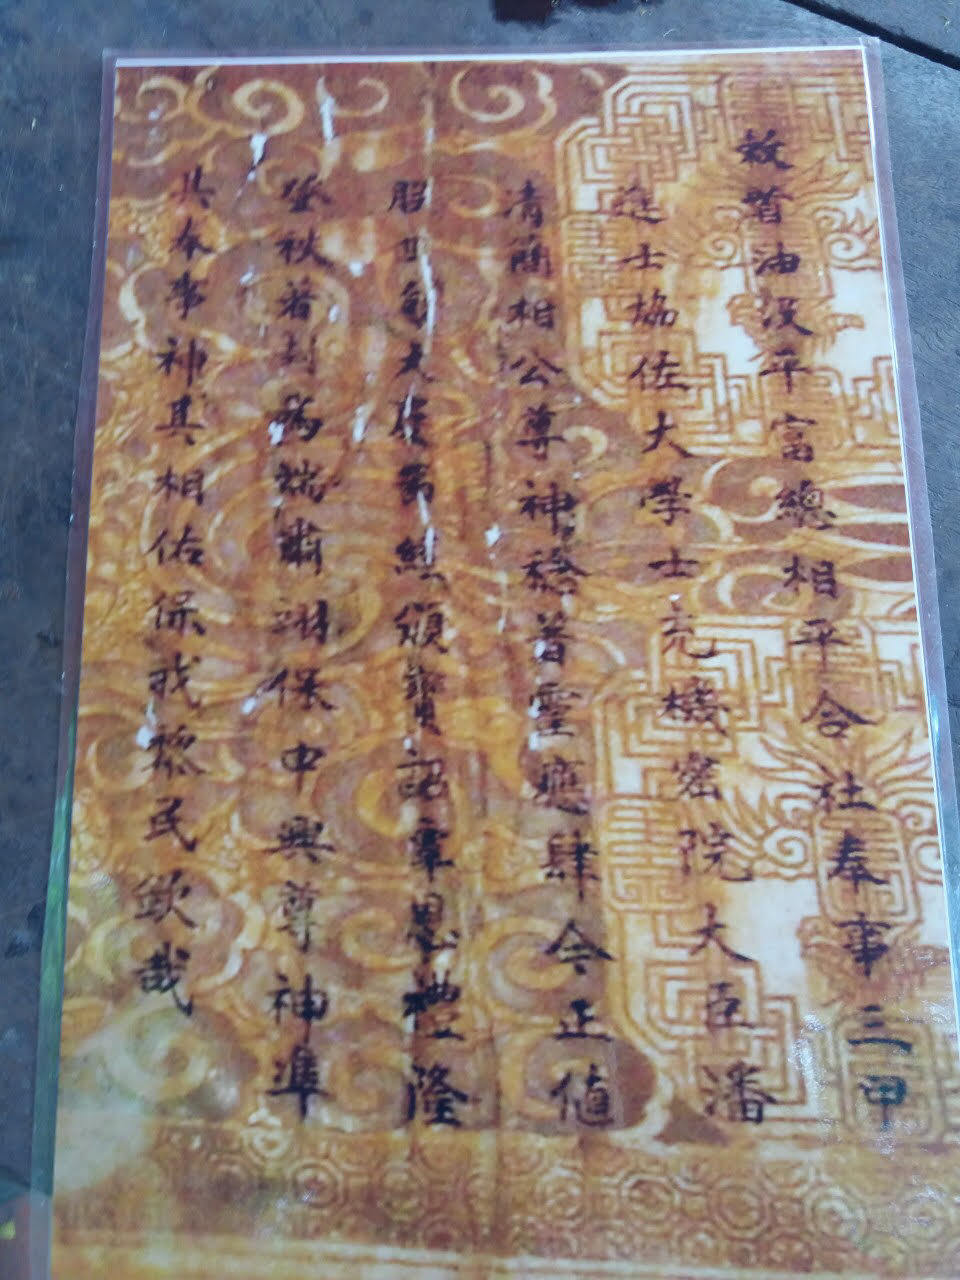 敕旨油没平富總相平合社奉事三甲
進士協佐大學士充機密院大臣潘
清簡相公尊神稔著靈應肆今正值
朕四旬大慶節經頒寶詔覃恩禮隆
登秩著封為端肅翊保中興尊神準
其奉事神其相佑保我黎民欽哉